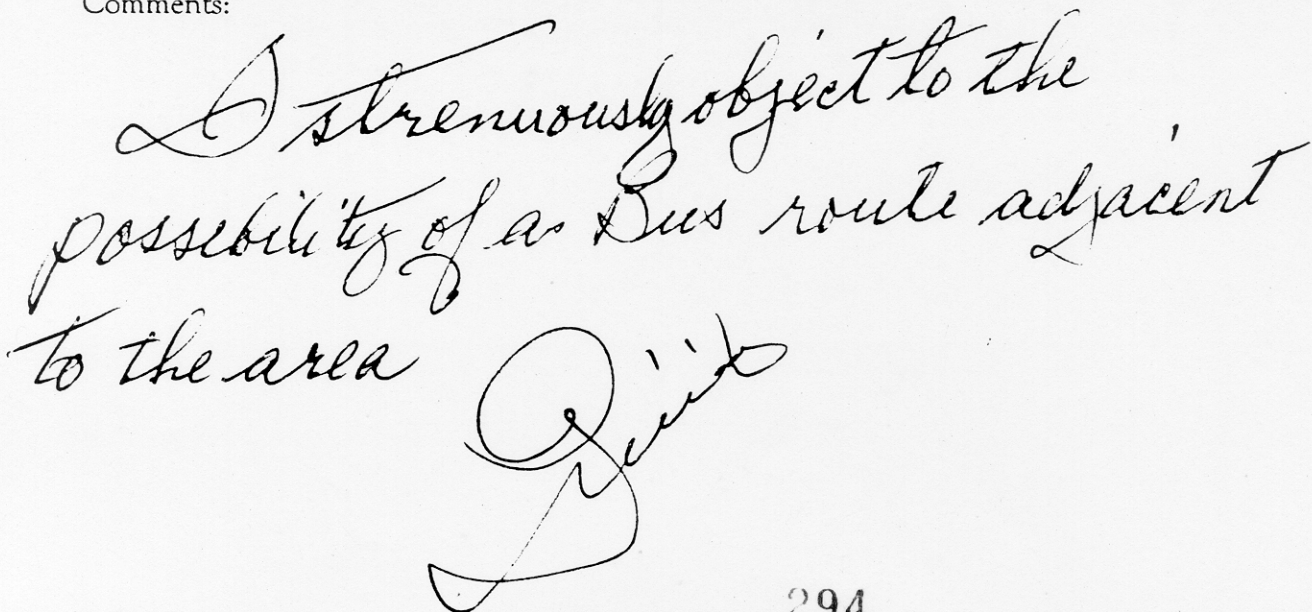 Comments:
I strenuously object to the
possibility of a Bus route adjacent
to the area
294